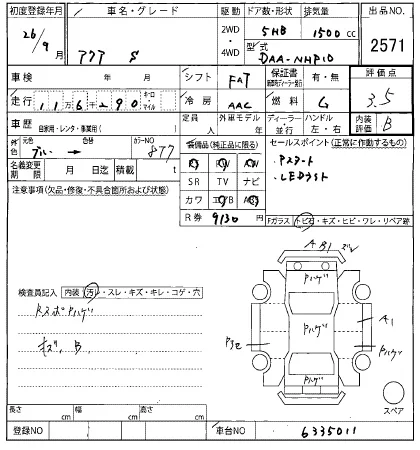 初度登録年月 車名・グレード 駆動 ドア数・形状 排気量 出品NO.
26/9月 アクア S 2WD・4WD 5HB 1500cc 2571
型式 DAA-NHP10
車検 年 月 シフト FAT 保証書 有・無 評価点
走行 11万6千290 キロ・マイル 冷房 AAC 燃料 G 3.5
車歴 自家用・レンタ・事業用( ) 定員 人 外車モデル 年 ディーラー・並行 ハンドル 左・右 内装評価 B
外色 元色 ブルー 色替 カラーNO 877
装備品(純正品に限る) セールスポイント(正常に作動するもの)
名義変更期限 月 日迄 積載 t
PS PW
SR TV ナビ
カワ エアB
・Pスタート
・LEDライト
注意事項(欠品・修復・不具合箇所および状態)
R券 9130 ¥
Fガラス トビ石・キズ・ヒビ・ワレ・リペア跡
AB1
Pハゲ
検査員記入 内装 汚レ・スレ・キズ・キレ・コゲ・穴
RスポPハゲ
キズ、B
A1
Pハゲ
Pハゲ
スペア
長さ cm 幅 cm 高さ cm
登録NO 車台NO 6335011